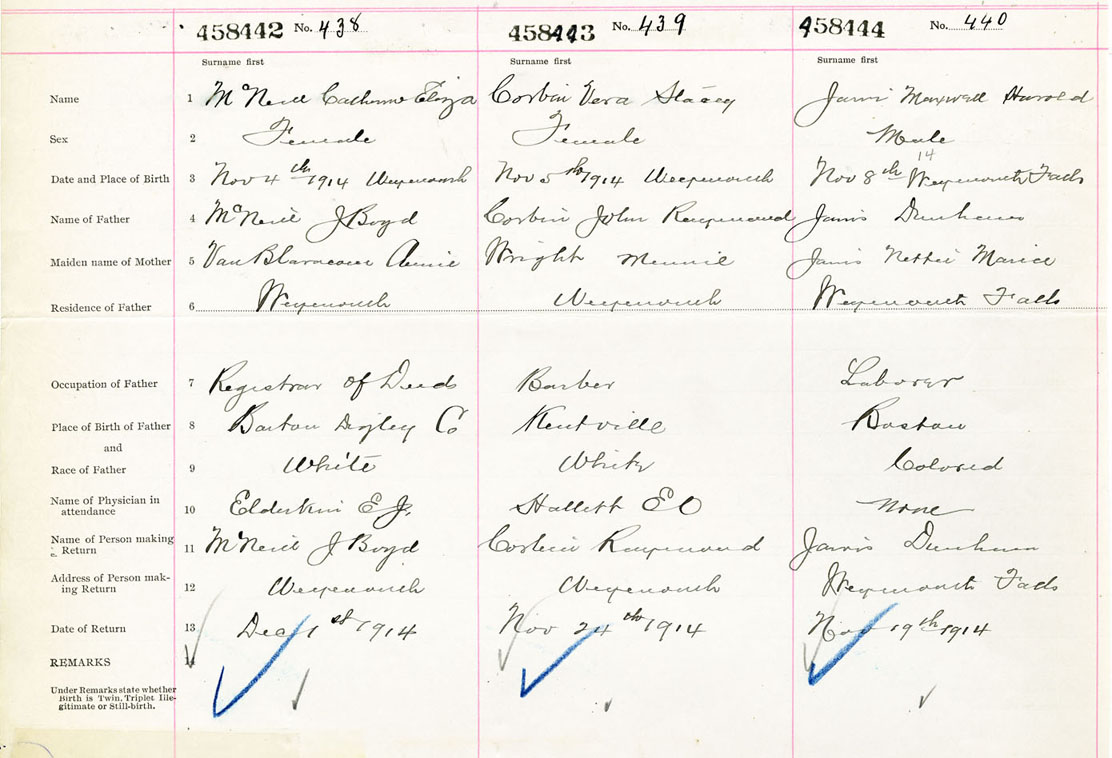 458442 No. 438 458443 No. 439 458444 No. 440
Surname first Surname first Surname first
Name 1 McNeill Catherine Eliza Corbin Vera Stacey Jarvis Maxwell Harold
Sex 2 Female Female Male
Date and Place of Birth 3 Nov 4th 1914 Weymouth Nov 5th 1914 Weymouth Nov 8th 14 Weymouth Falls
Name of Father 4 McNeill J Boyd Corbin John Raymond Jarvis Dunham
Maiden name of Mother 5 Van Blarcom Annie Wright Minnie Jarvis Nettie
Residence of Father 6 Weymouth Weymouth Weymouth Falls
Occupation of Father 7 Registrar of Deeds Barber Laborer
Place of Birth of Father 8 Barton Digby Co Kentville Boston
and
Race of Father 9 White White Colored
Name of Physician in attendance 10 Elderkin E J. Hallett E O None
Name of Person making Return 11 McNeill J Boyd Corbin Raymond Jarvis Dunham
Address of Person mak-ing Return 12 Weymouth Weymouth Weymouth Falls
Date of Return 13 Dec 1st 1914 Nov 24th 1914 Nov 19th 1914
REMARKS 14
Under Remarks state whether
Birth is Twin, Triplet Ille-
gitimate or Still-birth.